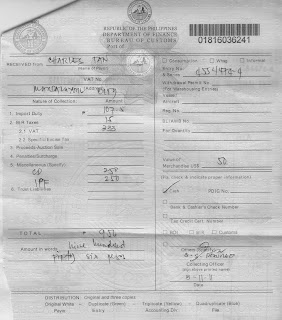 REPUBLIC OF THE PHILIPPINES
DEPARTMENT OF FINANCE
BUREAU OF CUSTOMS
Port of
01816036241
RECEIVED from CHARLES TAN
Name of Payor
VAT No.
Nature of Collection Amount
1. Import Duty
2. BIR Taxes
2.1 VAT 233
2.2 Specific/Excise Tax
3. Proceeds/Auction Sale
4. Penalties/Surcharge
5. Miscellaneous (Specify)
CD 250
IPF 250
6. Trust Liabilities
TOTAL 956
Amount in words nine hundred
fifty six pesos
Consumption Whsg Informal
Entry No.
Withdrawal Permit No.
(For Warehousing Entries)
Vessel
Reg. No.
BL/AWB No.
For Deposits
Value in
Merchandise US$ 50
Pls. check & indicate proper information:
Cash PDIC No.
Bank & Cashier's Check Number
Tax Credit Cert. Number
BOI BIR Customs
Others
Collecting Officer
(signature/printed name)
Date
DISTRIBUTION: Original and three copies
Original White - Duplicate (Green) - Triplicate (Yellow) - Quadruplicate (Blue)
Payor Entry Accounting Div. File